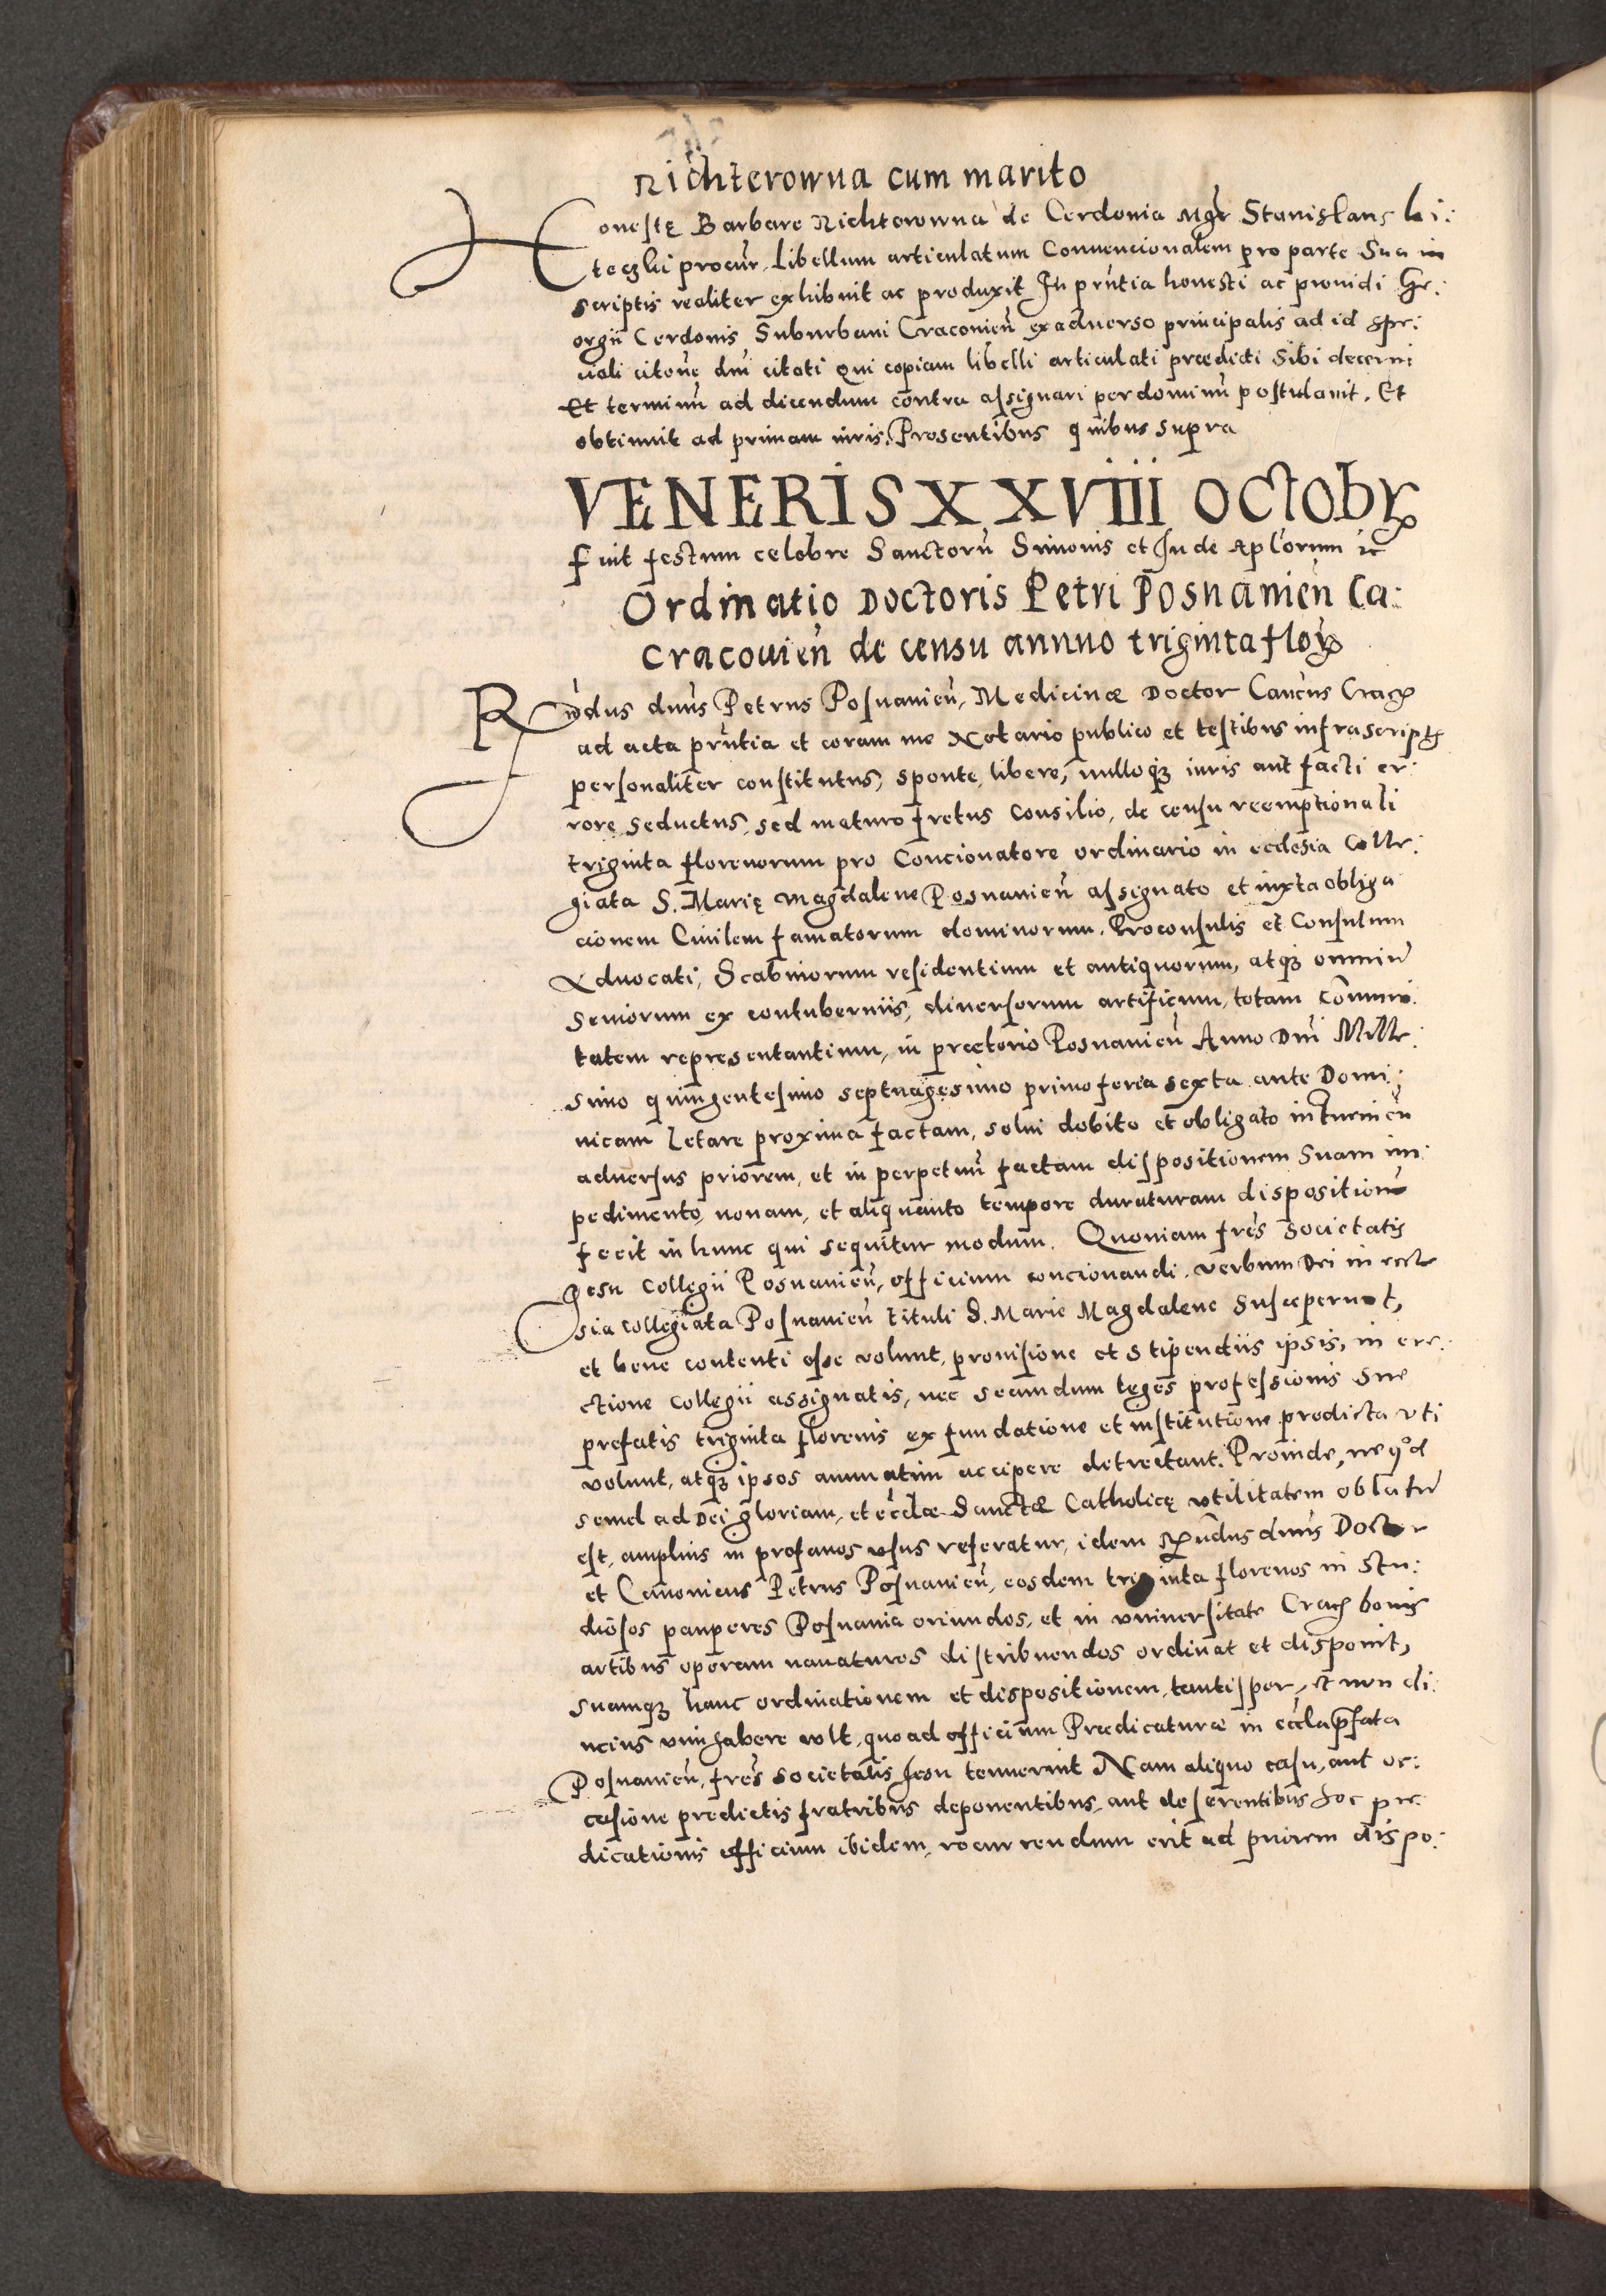 Richterowna cum marito
Honestę Barbare Richterowna de Cerdonia Mgr Stanislaus Li:
teczki procur. Libellum articulatum Conuencionalem pro parte Sua in
scriptis realiter exhibuit ac produxit In prñtia honesti ac prouidi Ge:
orgii Cerdonis Suburbani Cracouieñ ex aduerso principalis ad id spe:
ciali citoñe dñi citati Qui copiam libelli articulati prædicti Sibi decerni
Et terminũ ad dicendum contra assignari per dominũ postulauit. Et
obtinuit ad primam iuris. Presentibus quibus supra
VENERIS XXVIII OCTOBR
Fuit festum celebre Sanctorũ Simonis et Jude Aplorum ic
Ordinatio Doctoris Petri Posnanień Ca:
Cracouień de censu annuo triginta flor
Rñdus dnus Petrus Posnanień, Medicinæ Doctor Cancus Crac
ad acta prñtia et coram me Notario publico et testibus infrascriptis
personaliter constitutus, sponte, libere, nulloqz iuris aut facti er:
rore seductus, sed maturo fretus Consilio, de censu reemptionali
triginta florenorum pro Concionatore ordinario in ecclesia Colle:
giata S. Marię Magdalene Posnanień assignato et iuxta obliga
cionem Ciuilem famatorum dominorum. Proconsulis et Consulum
Aduocati, Scabinorum residentium et antiquorum, atqz omniũ
Seniorum ex contuberniis, diuersorum artificum, totam Commũ
tatem representantium, in prætorio Posnanień Anno Dñi Mille:
simo quingentesimo septuagesimo primo feria sexta ante Domi:
nicam Letare proxima factam, solui debito et obligato
aduersus priorem, et in perpetuũ factam dispositionem Suam im:
pedimento, nouam, et aliquanto tempore duraturam dispositionẽ
fecit in hunc qui sequitur modum. Quoniam fres Societatis
Jesu Collegii Posnanień, officium concionandi verbum Dei in eccle
sia collegiata Posnanień tituli S. Marie Magdalene Susceperunt,
et bene contenti esse volunt, prouisione et Stipendiis ipsis, in ere:
ctione Collegii assignatis, nec secundum leges professionis Sue
prefatis triginta florenis ex fundatione et institutione predicta vti
volunt, atqz ipsos annuatim accipere detrectant. Proinde, ne qd
semel ad Dei gloriam, et ecclæ Sanctæ Catholicę vtilitatem oblatũ
est, amplius in profanos vsus referatur, idem Rñdus dnus Doctor
et Canonicus Petrus Posnanień, eosdem triginta florenos in Stu:
diosos pauperes Posnania oriundos, et in vniuersitate Crac bonis
artibus operam nauaturos distribuendos ordinat et disponit,
suamqz hanc ordinationem et dispositionem, tantisper, et non di
ucius vim habere volt, quoad officium Prædicaturæ in eccla pfata
Posnanień, fres Societatis Jesu tenuerint Nam aliquo casu, aut oc:
casione predictis fratribus deponentibus, aut deserentibus hoc pre:
dicationis officium ibidem, recurrendum erit ad priorem dispo: